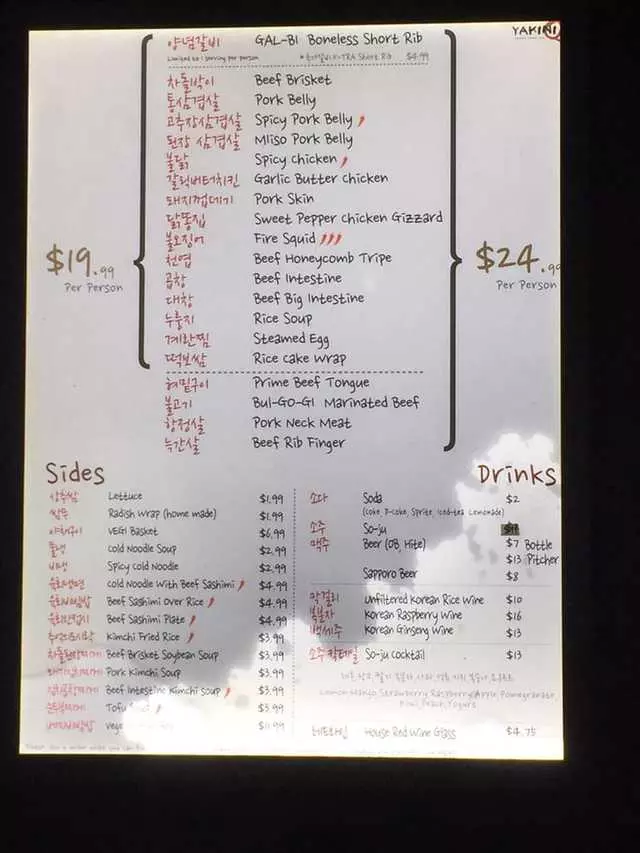 YAKINI
양념갈비 GAL-BI Boneless Short Rib
Limited to 1 serving per person $4.99
차돌박이 Beef Brisket
통삼겹살 Pork Belly
고추장삼겹살 Spicy Pork Belly
된장 삼겹살 Miso Pork Belly
불닭 Spicy Chicken
갈릭버터치킨 Garlic Butter Chicken
돼지껍데기 Pork Skin
닭똥집 Sweet Pepper Chicken Gizzard
불오징어 Fire Squid
천엽 Beef Honeycomb Tripe
$19.99 Per Person
$24.99 Per Person
곱창 Beef Intestine
대창 Beef Big Intestine
누룽지 Rice Soup
계란찜 Steamed Egg
떡보쌈 Rice cake Wrap
혀밑구이 Prime Beef Tongue
불고기 Bul-GO-GI Marinated Beef
항정살 Pork Neck Meat
늑간살 Beef Rib Finger
Sides
상추쌈 Lettuce $1.99
쌈무 Radish Wrap (home made) $1.99
야채구이 VEGI Basket $6.99
물냉 cold Noodle Soup $2.99
비냉 Spicy cold Noodle $2.99
cold Noodle With Beef Sashimi $4.99
육회비빔밥 Beef Sashimi Over Rice $4.99
육회한접시 Beef Sashimi Plate $4.99
Kimchi Fried Rice $3.99
차돌된장찌개 Beef Brisket Soybean Soup $3.99
돼지김치찌개 Pork Kimchi Soup $3.99
Beef Intestine Kimchi Soup $3.99
Tofu $3.99
Drinks
소다 Soda $2
(Coke, D-Coke, Sprite, Iced-tea, Lemonade)
소주 So-ju
맥주 Beer (OB, Hite) $7 Bottle
$13 Pitcher
Sapporo Beer $8
막걸리 Unfiltered Korean Rice Wine $10
복분자 Korean Raspberry Wine $16
백세주 Korean Ginseng Wine $13
소주칵테일 So-ju cocktail $13
Lemon Mango Strawberry Raspberry Apple Pomegranate
Kiwi, Peach, Yogurt
House Red Wine Glass $4.75